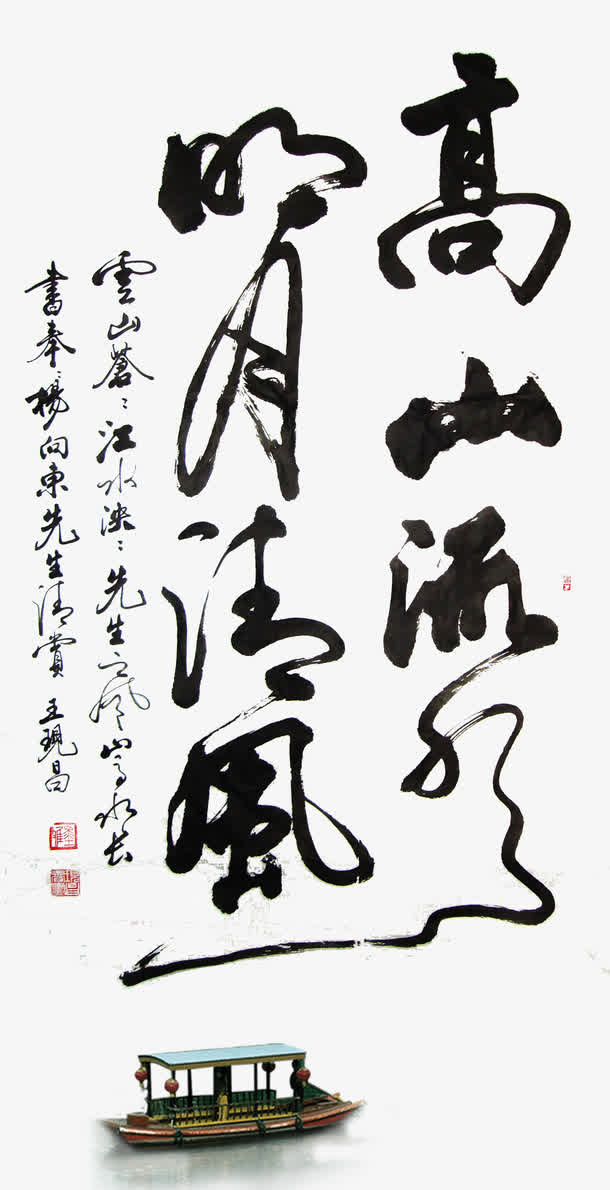 高山流水
明月清风
雲山蒼〻江水泱〻先生之風山高水长
書奉楊向東先生清賞 王現昌